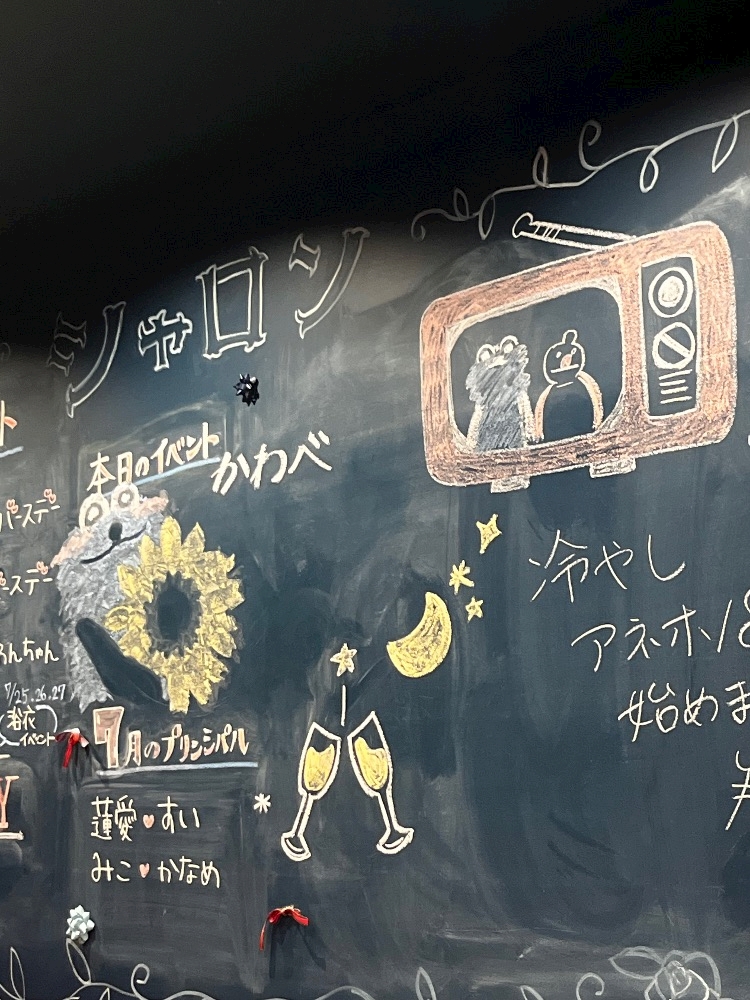 シャロン
本日のイベント
かわべ
バースデー
ースデー
んちゃん
7/25.26.27
浴衣
イベント
7月のプリンシパル
蓮愛♥すい
みこ♥かなめ
冷やし
アネホパ
始めま
Y